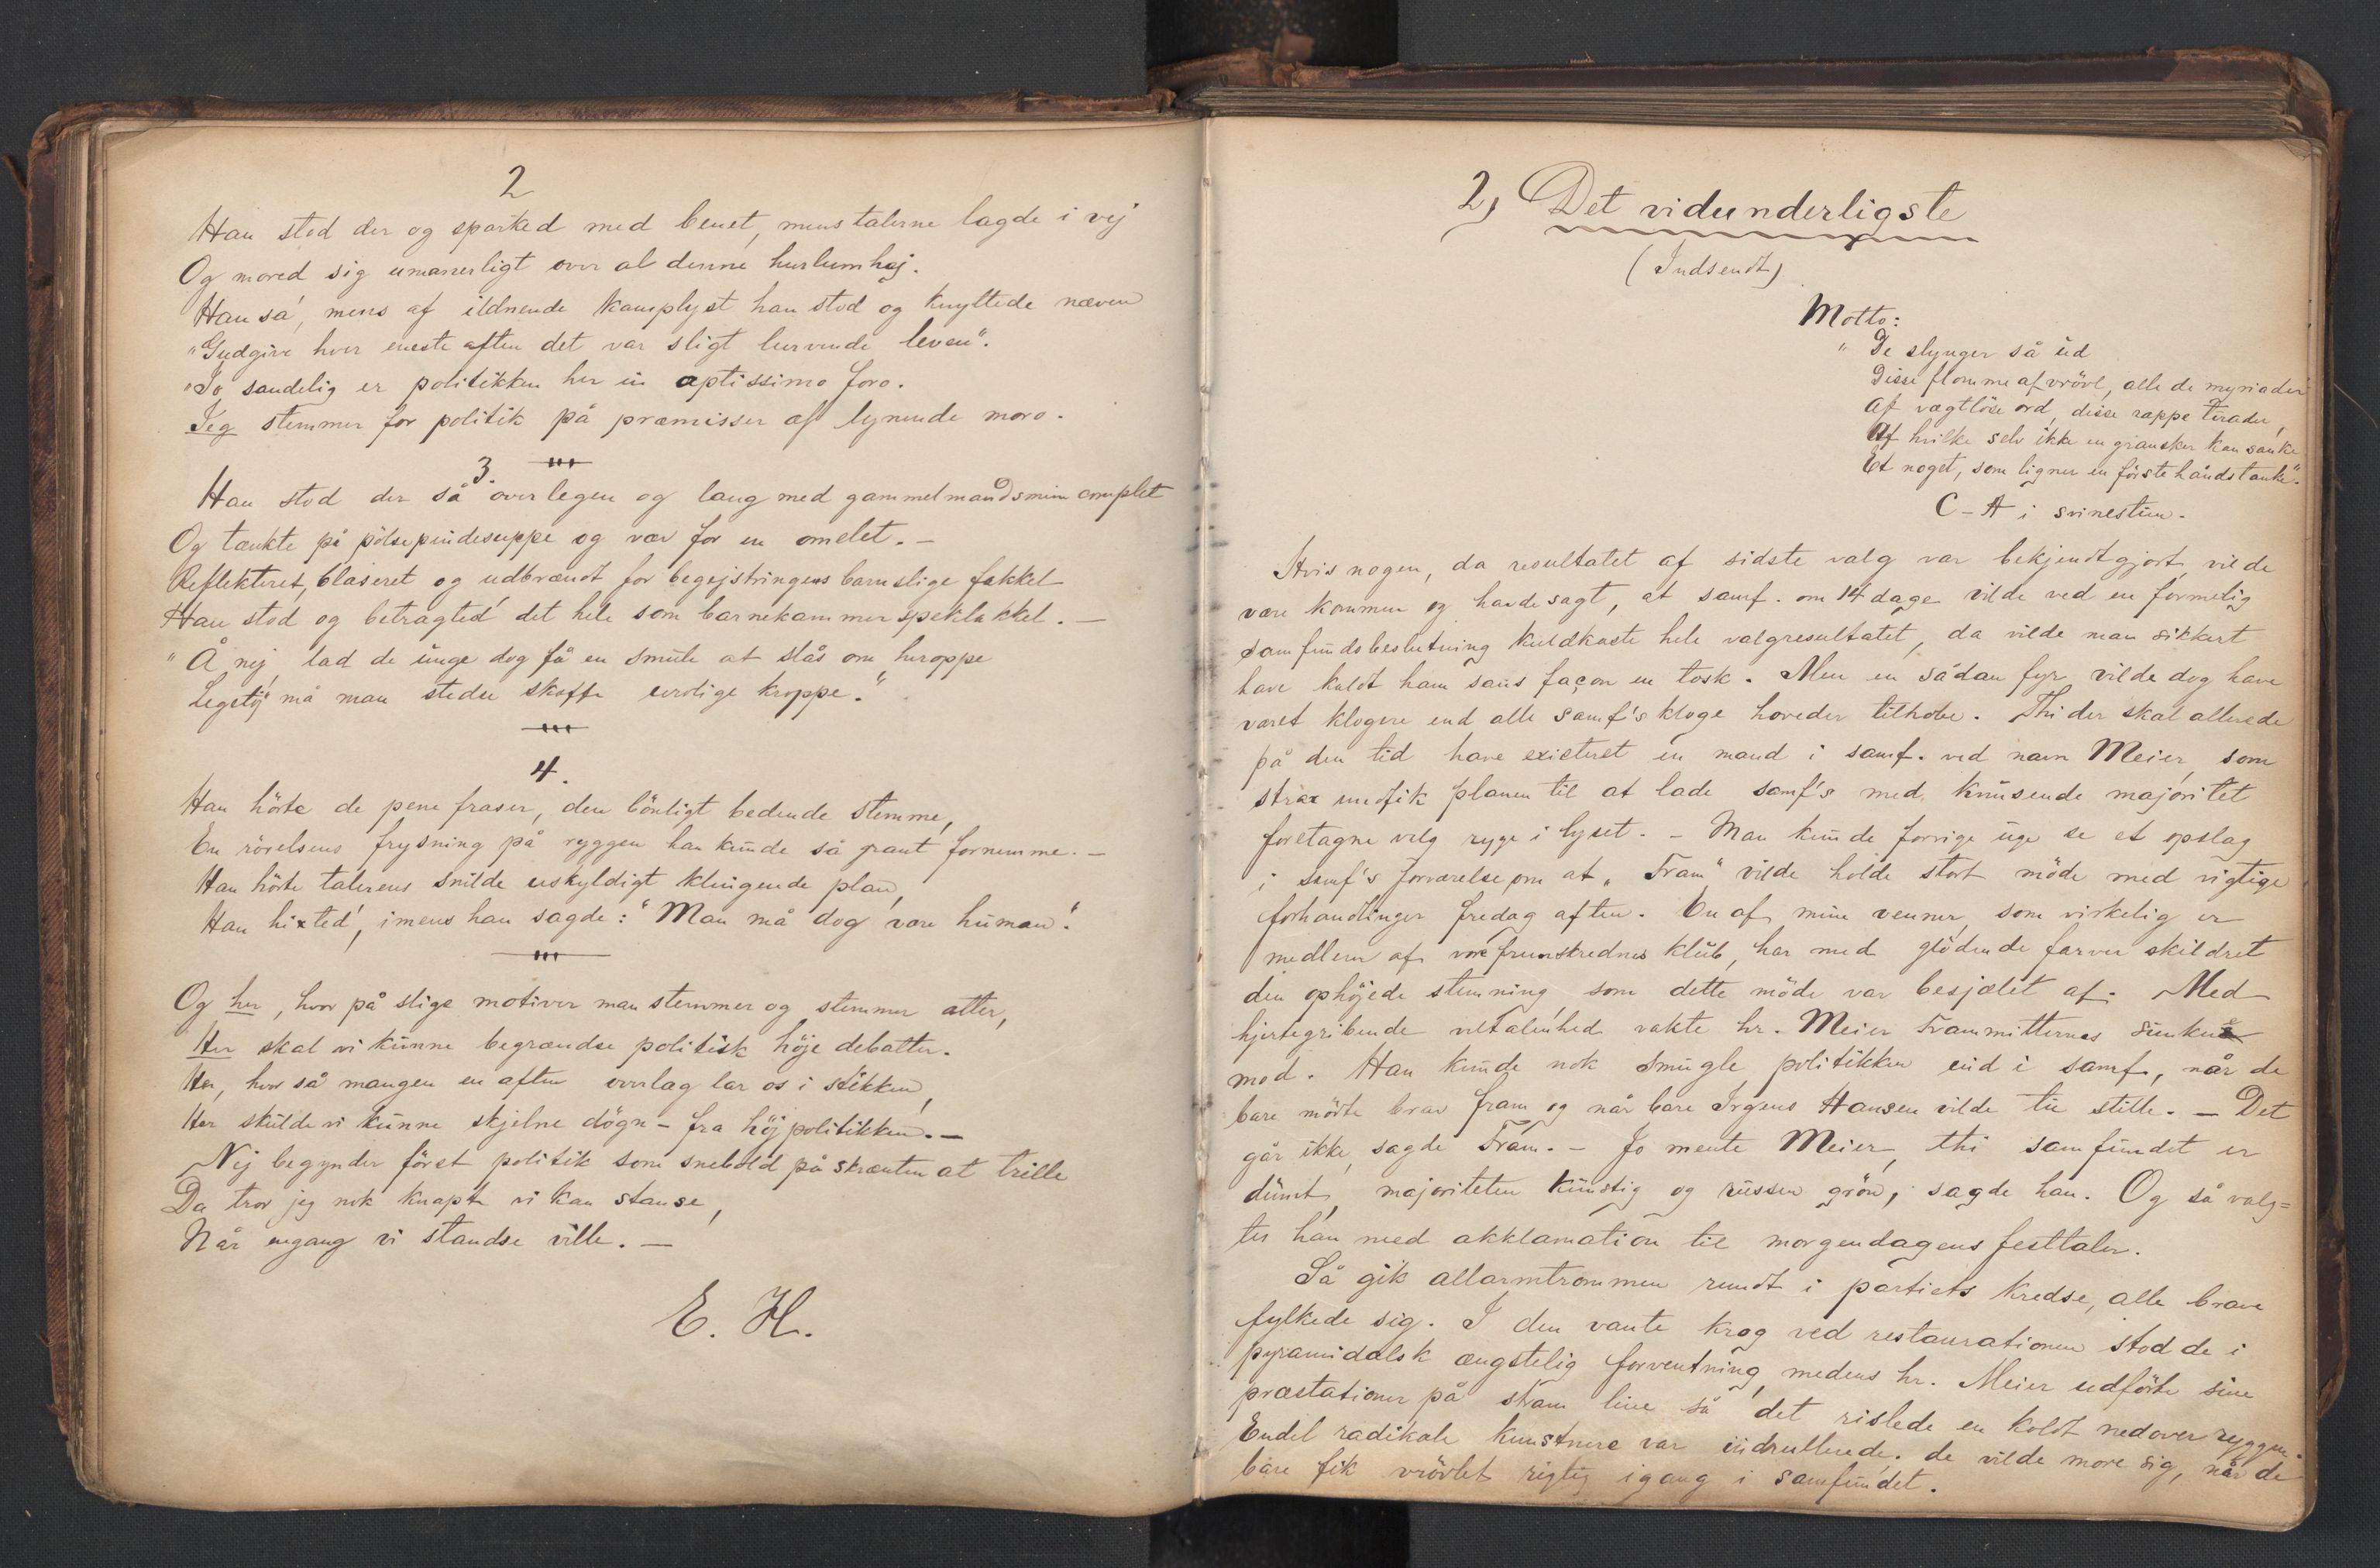 2
Han stod der og sparked med benet, mens talerne lagde i vej
Og mored sig umanerligt over al denne hurlumhej.
Han så, mens af ildnende kamplyst han stod og knyttede næven
"Gudgive hver eneste aften det var sligt lurvende leven".
"Jo sandelig er politikken her in optissimo foro.
Jeg stemmer for politik på præmisser af lynende moro.
3.
Han stod der så overlegen og lang med gammelmandsmine complet
Og tænkte på pölsepindesuppe og var for en omelet. —
Reflekteret, blaseret og udbrændt for begejstringens barnslige fakkel
Han stod og betragted' det hele som barnekammerspektakkel. —
"Å nej, lad de unge dog få en smule at slås om heroppe
Legetöj må man stedse skaffe urolige kroppe."
4.
Han hörte de pene fraser, den bönligt bedende stemme,
En rörelsens frysning på ryggen han kunde så grant fornemme. —
Han hörte talerens snilde uskyldigt klingende plan,
Han hixted', imens han sagde: "Man må dog være human".
Og her, hvor på slige motiver man stemmer og stemmer atter,
Her skal vi kunne begrændse politisk höje debatter.
Her, hvor så mangen en aften overlag lar os i stikken,
Her skulde vi kunne skjelne dögn - fra höjpolitikken. —
Nej begynder först politik som snebold på skrænten at trille
Da tror jeg nok knapt vi kan stanse,
Når engang vi standse ville. —
E. H.
2) Det vidunderligste
(Indsendt)
Motto:
" De slynger så ud
Disse flomme af vrövl, alle de myriader
Af vægtlöse ord, disse rappe tirader,
Af hvilke selv ikke en gransker kan sanke
Et noget, som ligner en förstehåndstanke".
C - A i svinestien.
Hvis nogen, da resultatet af sidste valg var bekjendtgjort, vilde
være kommen og havde sagt, at samf. om 14 dage vilde ved en formelig
samfundsbeslutning kuldkaste hele valgresultatet, da vilde man sikkert
have kaldt ham sans façon en tosk. Men en sådan fyr vilde dog have
været klogere end alle samf's kloge hoveder tilhobe. Thi der skal allerede
på den tid have existeret en mand i samf. ved navn Meier, som
strax undfik planen til at lade samf's med knusende majoritet
foretagne valg ryge i lyset. - Man kunde forrige uge se et opslag
i samf's forværelse om at "Fram" vilde holde stort möde med vigtige
forhandlinger fredag aften. En af mine venner, som virkelig er
medlem af vore fremskrednes klub, har med glödende farver skildret
den ophöjede stemning som dette möde var besjælet af. Med
hjertegribende veltalenhed vakte hr. Meier Frammitternes sunkne
mod. Han kunde nok smugle politikken ind i samf., når de
bare mödte brav fram og når bare Irgens Hansen vilde tie stille. — Det
går ikke, sagde Fram. - Jo mente Meier, thi samfundet er
dumt, majoriteten kunstig og russen grön, sagde han. Og så valg=
tes han med akklamation til morgendagens festtaler.
Så gik allarmtrommen rundt i partiets kredse, alle brave
fylkede sig. I den vante krog ved restaurationen stod de i
pyramidalsk ængstelig forventning, medens hr. Meier udförte sine
præstationer på stram line så det rislede en koldt nedover ryggen.
Endel radikale kunstnere var indrullerede. de vilde more sig, når de
bare fik vrövlet rigtig igang i samfundet.